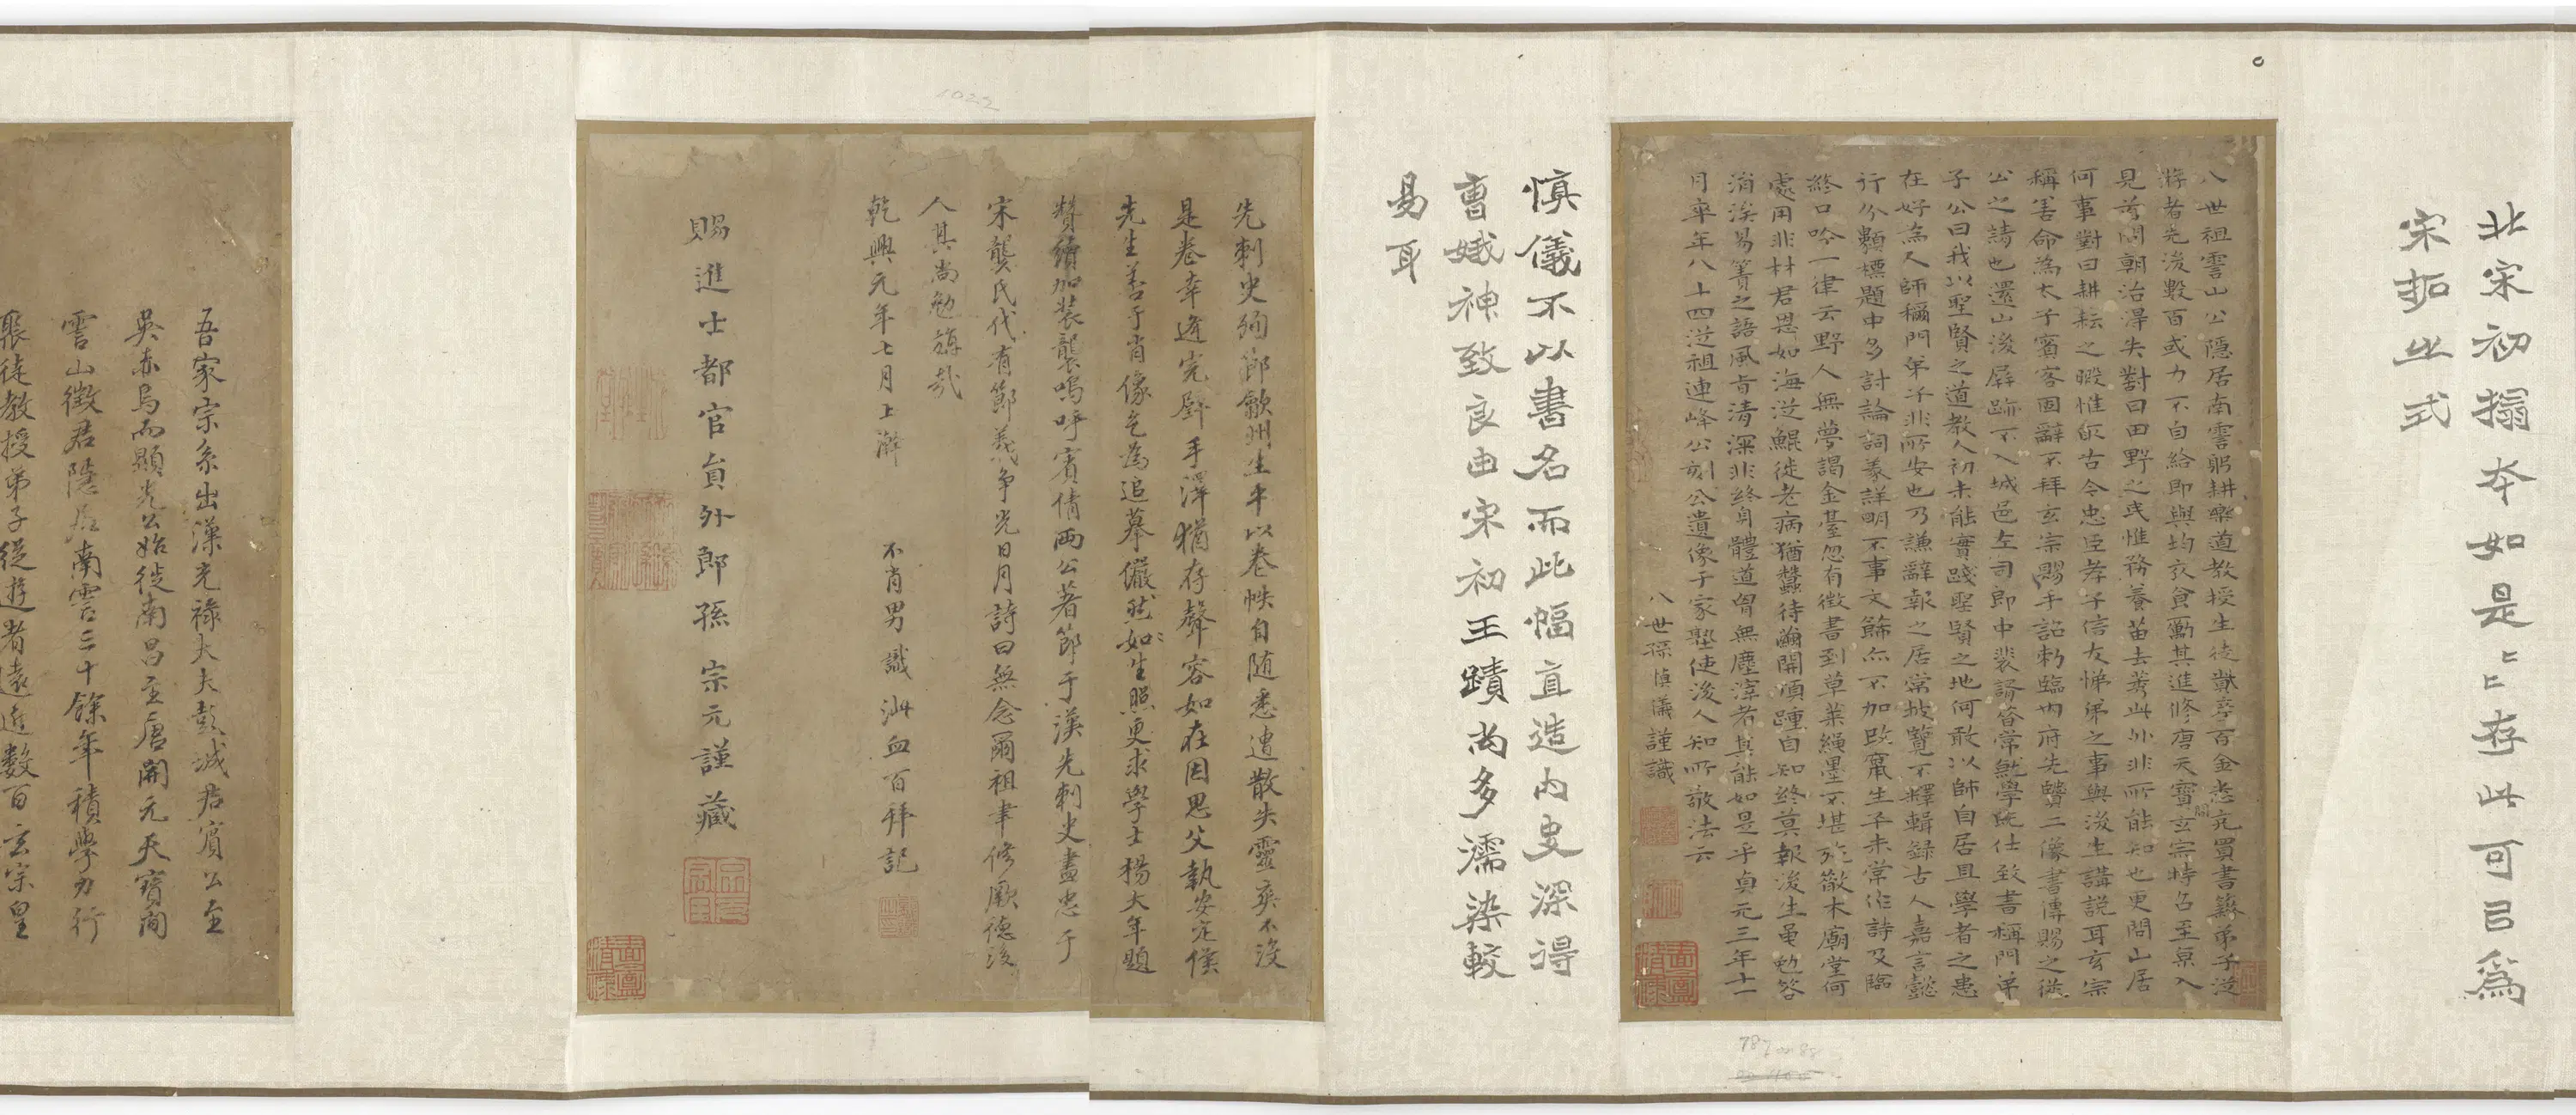 北宋初搨本如是〻存此可㠯爲
宋拓之式
八世祖霅山公隱居南霅躬耕樂道教授生徒數辛百金悉充買書籍弟子從
游者先後數百或力不自給即與均衣食勵其進修唐天寶玄宗時召至京入
見首問朝治得失對曰田野之民惟務養苗去莠此外非所能知也更問山居
何事對曰耕耘之暇惟取古今忠臣孝子信友悌弟之事與後生講説耳玄宗
稱善命為太子賓客固辭不拜玄宗賜手詔勑臨內府先賢二像書傳賜之從
公之請也還山後屏跡不入城邑左司郎中裴諝嘗常就學既仕致書稱門弟
子公曰我以聖賢之道教人初未能實踐聖賢之地何敢以師自居且學者之患
在好為人師稱門弟子非所安也乃謙辭報之居常披覽不釋輯録古人嘉言懿
行分類標題中多討論詞義詳明不事文飾亦不加改竄生平未常作詩及臨
終口吟一律云野人無夢謁金臺忽有徵書到草萊繩墨不堪施散木廟堂何
處用非材君恩如海從鯤徙老病猶蠶待繭開頂踵自知終莫報後生黽勉答
涓埃易簀之語風旨清深非終身體道胷無塵滓者其能如是乎貞元三年十一
月卒年八十四從祖連峰公刻公遺像于家塾使後人知所敬法云
八世孫慎儀謹識
慎儀不以書名而此幅直造內史深得
曹娥神致良由宋初王蹟尚多濡染較
易耳
先刺史殉節歙州生平以卷帙自随悉遭散失靈爽不沒
是卷幸逢完歸手澤猶存聲容如在因思父執安定侯
先生善于肖像乞為追摹儼然如生照更求學士楊大年題
贊續加装襲嗚呼賓倩兩公著節于漢先刺史盡忠于
宋龔氏代有節義争光日月詩曰無念爾祖聿修厥德後
人其尚勉旃哉
乾興元年七月上澣 不肖男識泚血百拜記
賜進士都官員外郎孫宗元謹藏
吾家宗系出漢光禄大夫彭城君賓公至
吳赤烏而顯光公始徙南昌至唐開元天寳間
霅山徵君隱居南霅三十餘年積學力行
聚徒教授弟子從遊者遠近数百玄宗皇